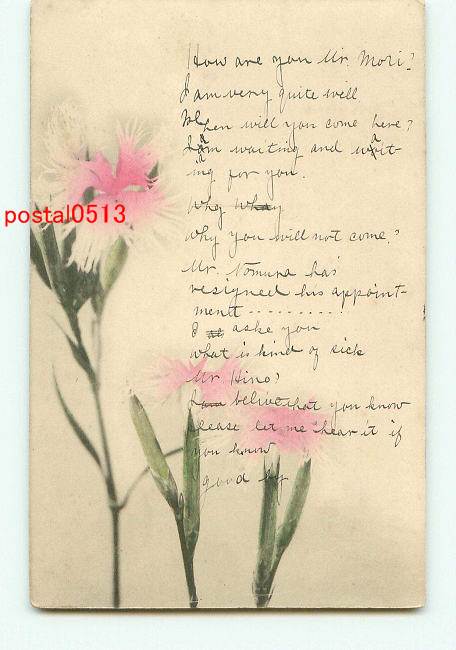 How are you Mr. Mori?
I am very quite well
When will you come here?
I am waiting and wait-
ing for you.
why why
why you will not come?
Mr. Nomura has
resigned his appoint-
ment ----------!
I aske you
what is kind of sick
Mr. Hino?
I belive that you know
please let me hear it if
you know
good by
postal0513